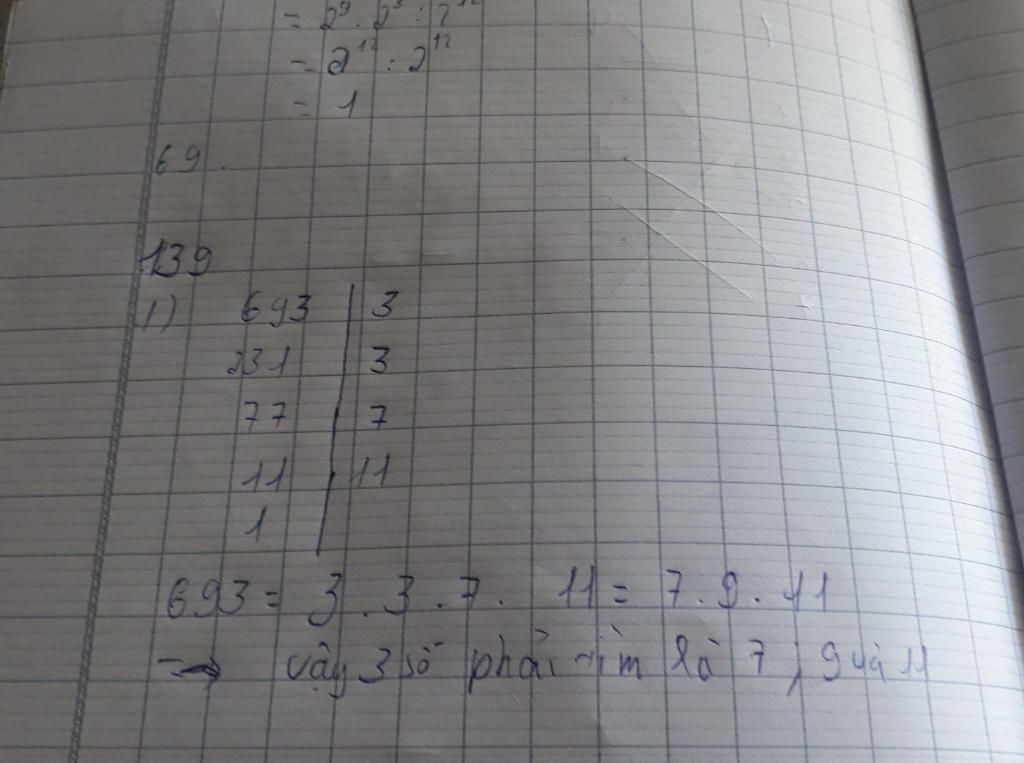 = 2⁹ . 2³ : 2¹²
= 2¹² : 2¹²
= 1
69.
139
1) 693 | 3
231 | 3
77 | 7
11 | 11
1 |
693 = 3 . 3 . 7 . 11 = 7 . 9 . 11
=> vậy 3 số phải tìm là 7, 9 và 11